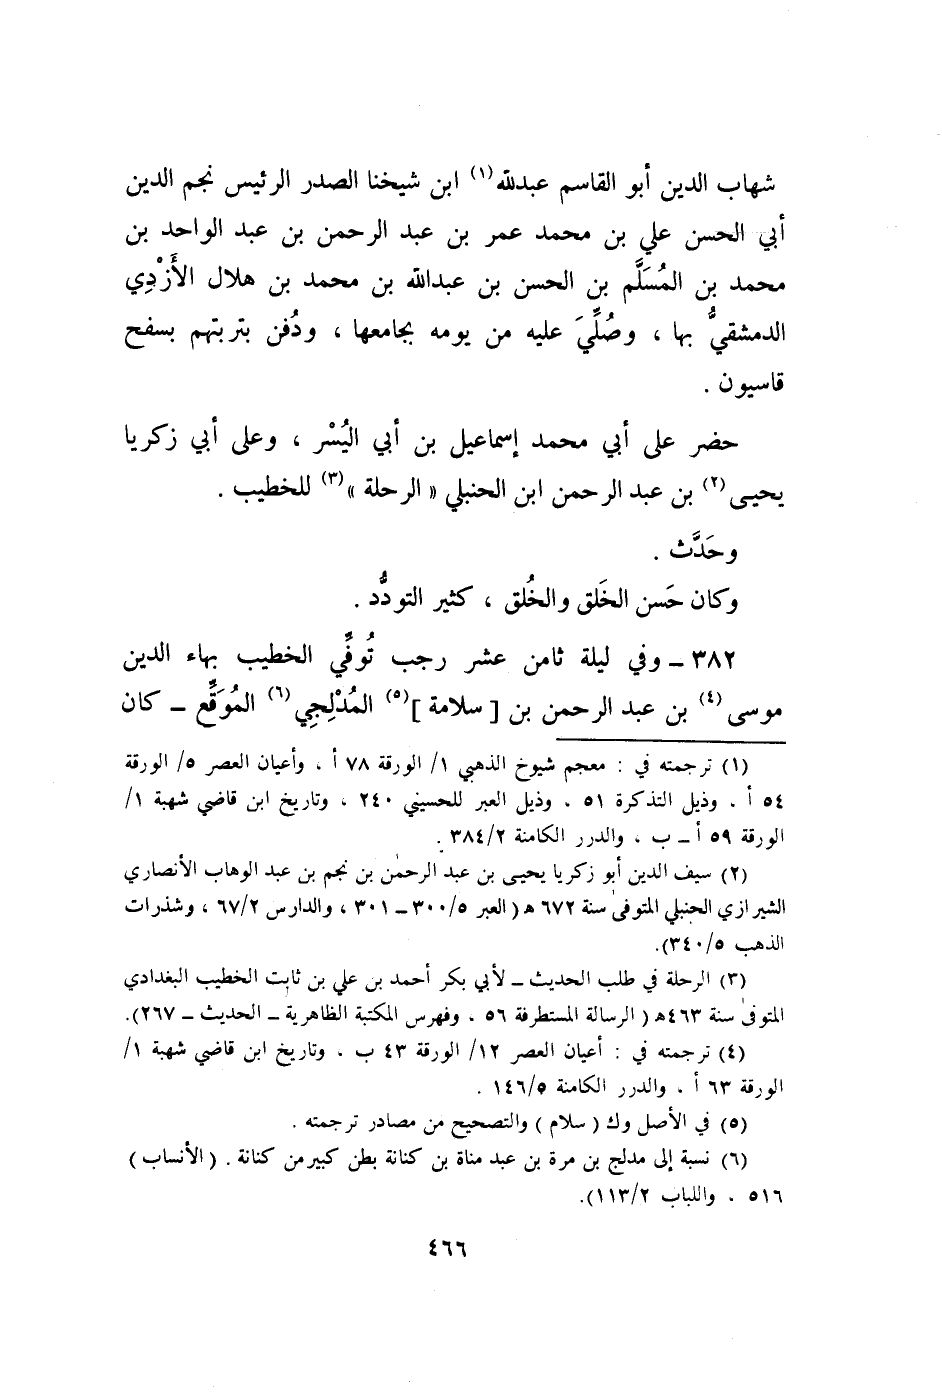 شهاب الدين أبو القاسم عبدالله(١) ابن شيخنا الصدر الرئيس نجم الدين
أبي الحسن علي بن محمد عمر بن عبد الرحمن بن عبد الواحد بن
محمد بن المُسَلَّم بن الحسن بن عبدالله بن محمد بن هلال الأَزْدِي
الدمشقيُّ بها ، وصُلِّيَ عليه من يومه بجامعها ، ودُفن بتربتهم بسفح
قاسيون .
حضر على أبي محمد إسماعيل بن أبي اليُسْر ، وعلى أبي زكريا
يحيى(٢) بن عبد الرحمن ابن الحنبلي « الرحلة »(٣) للخطيب .
وحَدَّث .
وكان حَسن الخَلق والخُلق ، كثير التودُّد .
٣٨٢ ـ وفي ليلة ثامن عشر رجب تُوفِّي الخطيب بهاء الدين
موسى(٤) بن عبد الرحمن بن [ سلامة ](٥) المُدْلِجِي(٦) المُوَقِّع ـ كان
(١) ترجمته في : معجم شيوخ الذهبي ١/ الورقة ٧٨ أ ، وأعيان العصر ٥/ الورقة
٥٤ أ ، وذيل التذكرة ٥١ ، وذيل العبر للحسيني ٢٤٠ ، وتاريخ ابن قاضي شهبة ١/
الورقة ٥٩ أ ـ ب ، والدرر الكامنة ٣٨٤/٢ .
(٢) سيف الدين أبو زكريا يحيى بن عبد الرحمٰن بن نجم بن عبد الوهاب الأنصاري
الشيرازي الحنبلي المتوفىٰ سنة ٦٧٢ هـ ( العبر ٣٠٠/٥ ـ ٣٠١ ، والدارس ٦٧/٢ ، وشذرات
الذهب ٣٤٠/٥).
(٣) الرحلة في طلب الحديث ـ لأبي بكر أحمد بن علي بن ثابت الخطيب البغدادي
المتوفىٰ سنة ٤٦٣هـ ( الرسالة المستطرفة ٥٦ ، وفهرس المكتبة الظاهرية ـ الحديث ـ ٢٦٧).
(٤) ترجمته في : أعيان العصر ١٢/ الورقة ٤٣ ب ، وتاريخ ابن قاضي شهبة ١/
الورقة ٦٣ أ ، والدرر الكامنة ١٤٦/٥ .
(٥) في الأصل وك ( سلام ) والتصحيح من مصادر ترجمته .
(٦) نسبة إلى مدلج بن مرة بن عبد مناة بن كنانة بطن كبير من كنانة . ( الأنساب )
٥١٦ ، واللباب ١١٣/٢).
٤٦٦